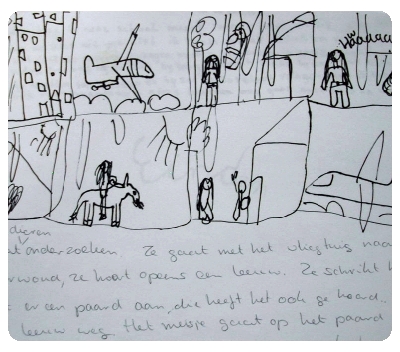 dieren
onderzoeken. Ze gaat met het vliegtuig naa
erwoud, ze hoort opeens een leeuw. Ze schrikt h
er een paard aan, die heeft het ook ge hoord..
leeuw weg. Het meisje gaat op het paard